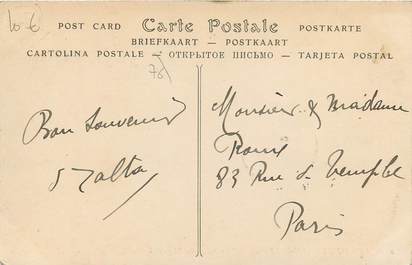 10 €
POST CARD Carte Postale POSTKARTE
BRIEFKAART — POSTKAART
CARTOLINA POSTALE — ОТКРЫТОЕ ПИСЬМО — TARJETA POSTAL
78
Bon Souvenir
Malta
Monsieur & Madame
Roux
83 Rue du Temple
Paris